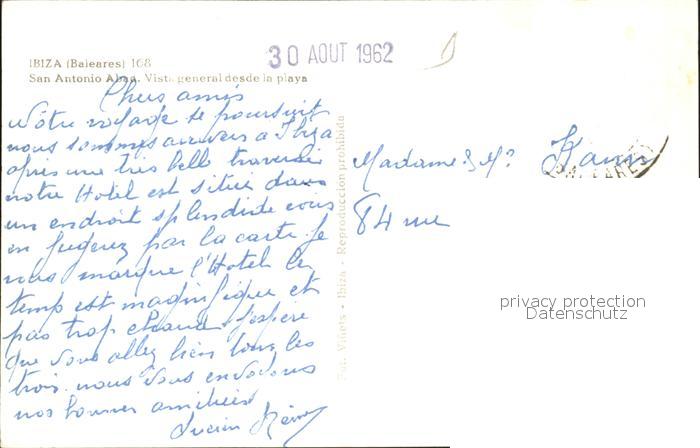 IBIZA (Baleares) 168
San Antonio Abad. Vista general desde la playa
30 AOUT 1962
Chers amis
Nôtre voyage se poursuit
nous sommes arrivés a Ibiza
après une très belle traversée
notre Hotel est situé dans
un endroit splendide vous
en jugerez par la carte je
vous marque l'Hotel le
temp est magnifique et
pas trop chaud j'espère
que vous allez bien tous les
trois. nous vous envoyons
nos bonnes amitiés
Lucien
Madame & Mr
84 rue
Fot. Viñets - Ibiza - Reproducción prohibida
BALEARES
privacy protection
Datenschutz